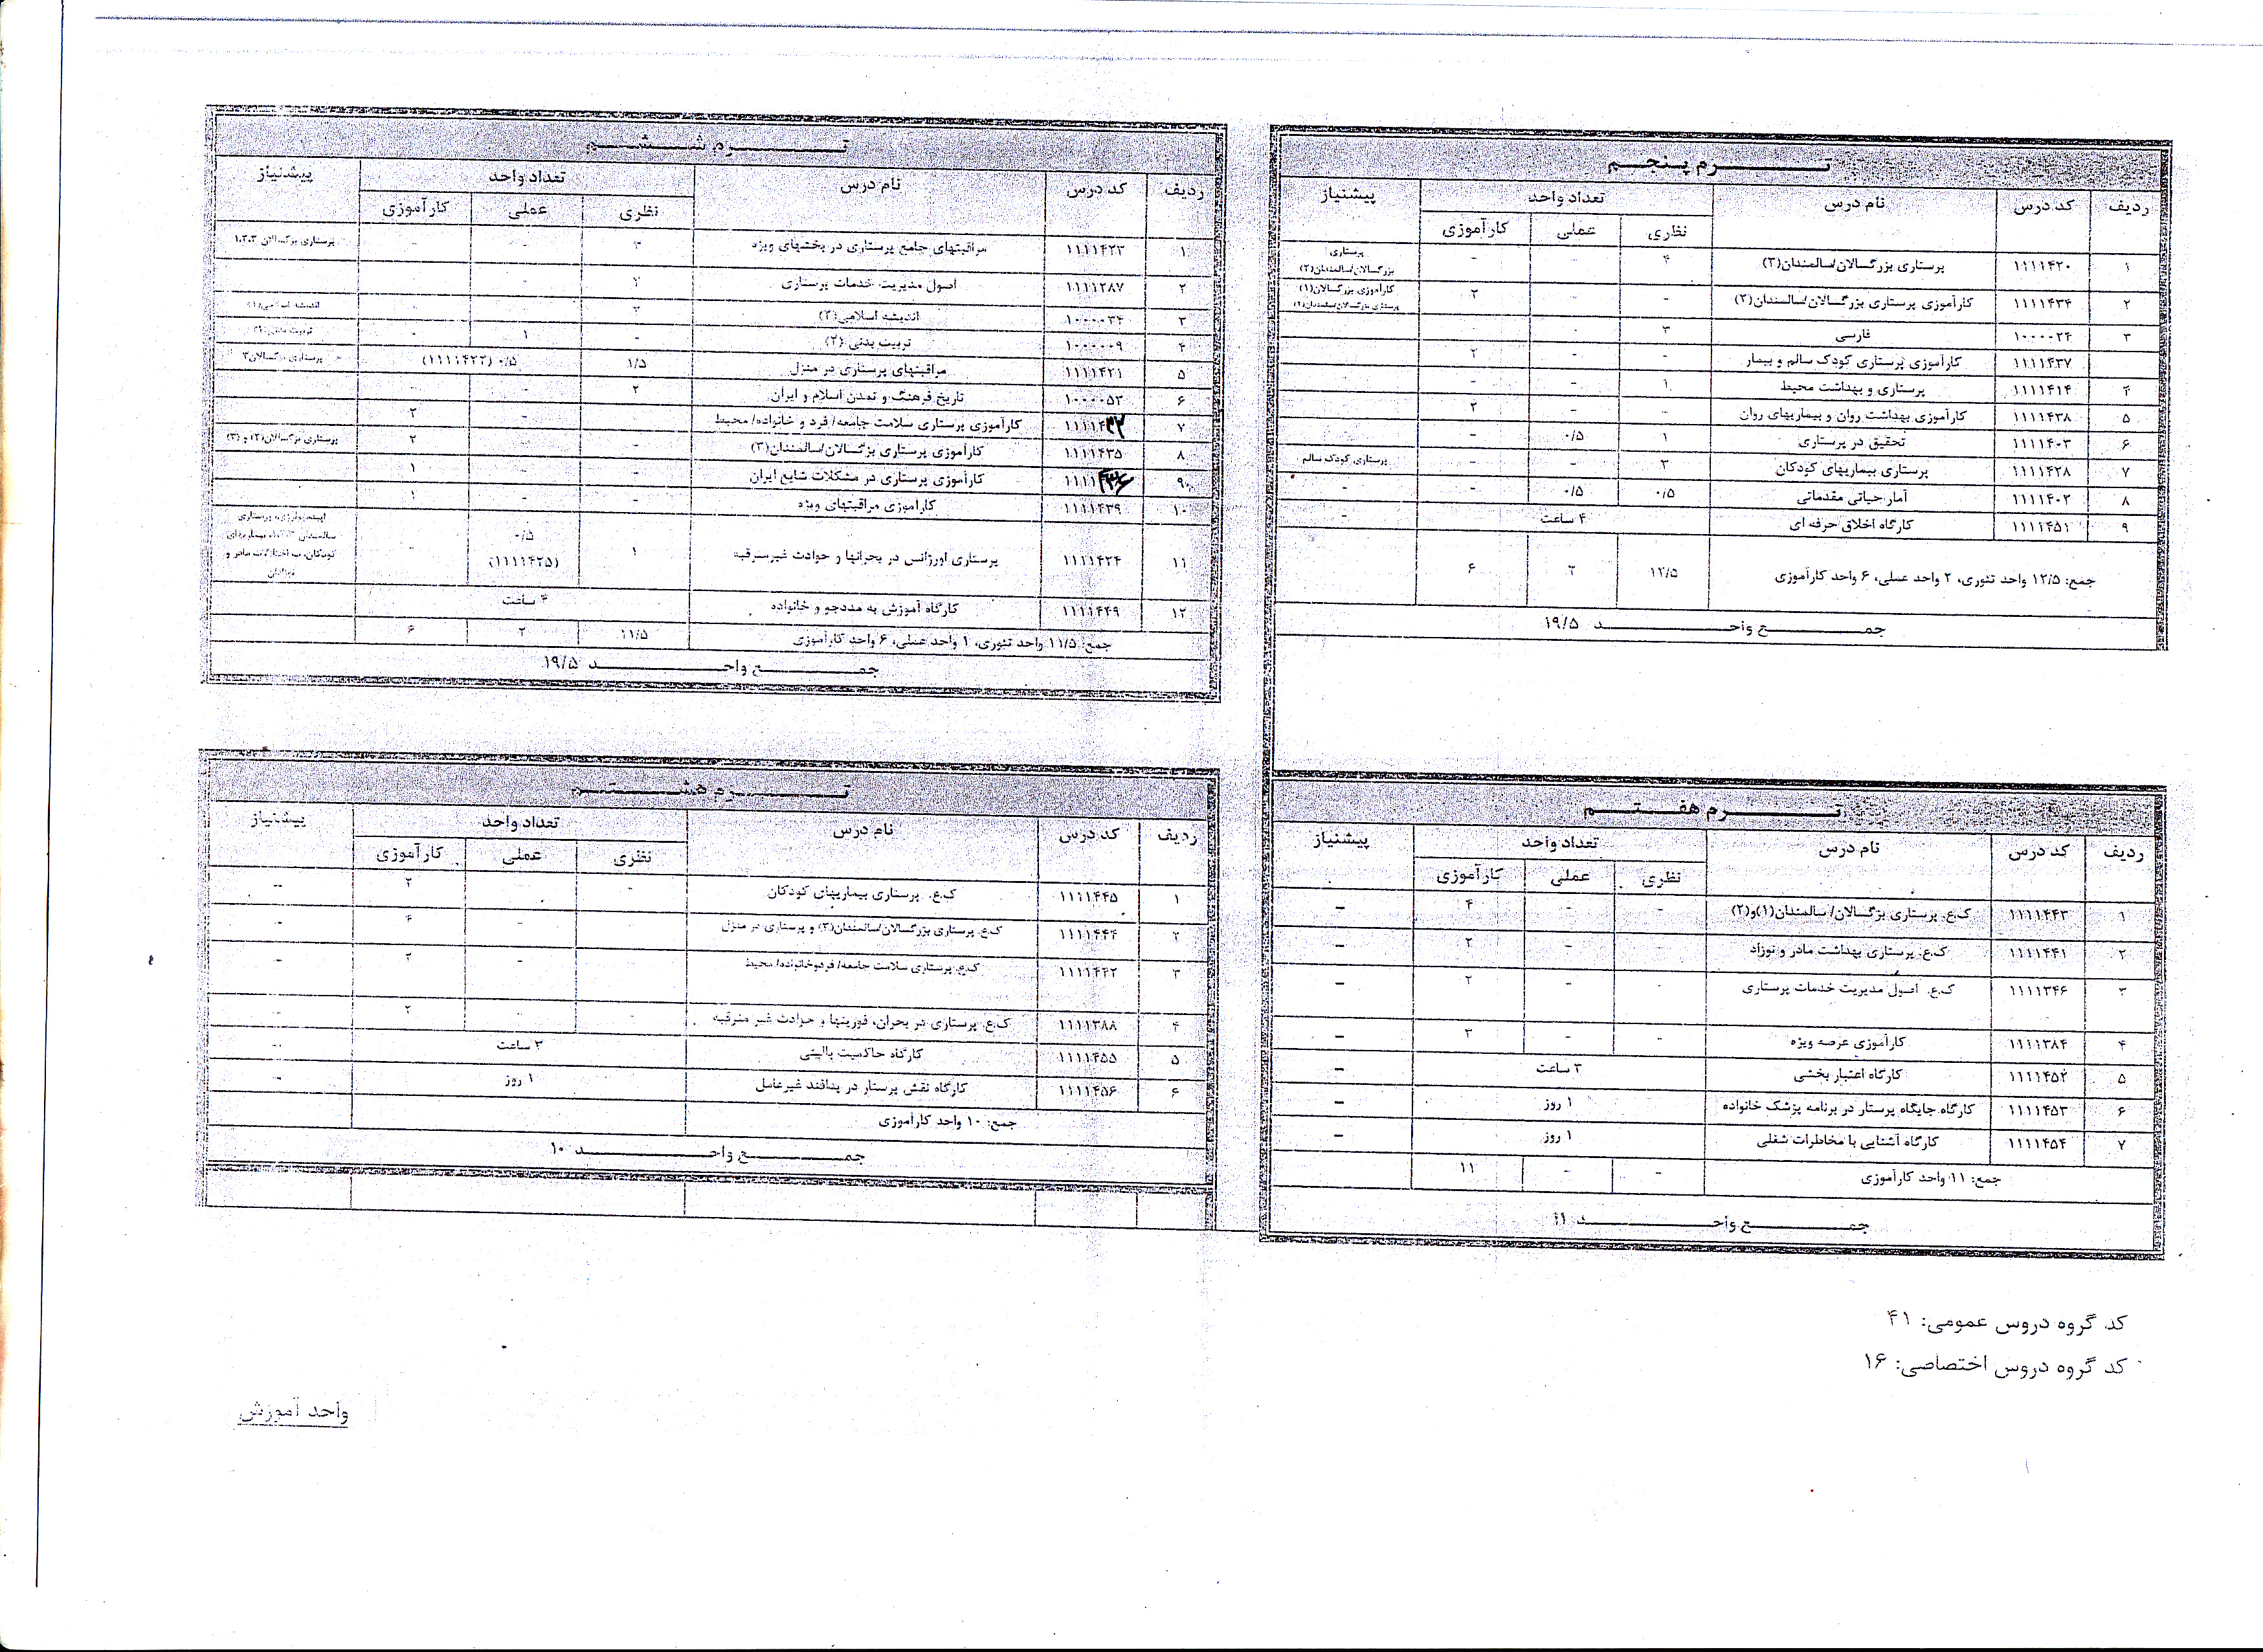 تــرم پـنجـم
ردیف کد درس نام درس تعداد واحد پیشنیاز
نظری عملی کارآموزی
۱ ۱۱۱۱۴۲۰ پرستاری بزرگسالان/سالمندان(۳) ۴ - - پرستاری بزرگسالان/سالمندان(۲)
۲ ۱۱۱۱۴۳۴ کارآموزی پرستاری بزرگسالان/سالمندان(۲) - - ۲ کارآموزی بزرگسالان(۱) پرستاری بزرگسالان/سالمندان(۲)
۳ ۱۰۰۰۰۲۴ فارسی ۳ - -
۱۱۱۱۴۳۷ کارآموزی پرستاری کودک سالم و بیمار - - ۲
۴ ۱۱۱۱۴۱۴ پرستاری و بهداشت محیط ۱ - -
۵ ۱۱۱۱۴۳۸ کارآموزی بهداشت روان و بیماریهای روان - - ۲
۶ ۱۱۱۱۴۰۳ تحقیق در پرستاری ۱ ۰/۵ -
۷ ۱۱۱۱۴۲۸ پرستاری بیماریهای کودکان ۳ - - پرستاری کودک سالم
۸ ۱۱۱۱۴۰۲ آمار حیاتی مقدماتی ۰/۵ ۰/۵ - -
۹ ۱۱۱۱۴۵۱ کارگاه اخلاق حرفه ای ۴ ساعت -
جمع: ۱۲/۵ واحد تئوری، ۲ واحد عملی، ۶ واحد کارآموزی ۱۲/۵ ۲ ۶
جمــع واحــد ۱۹/۵
تــرم شـشـم
ردیف کد درس نام درس تعداد واحد پیشنیاز
نظری عملی کارآموزی
۱ ۱۱۱۱۴۲۳ مراقبتهای جامع پرستاری در بخشهای ویژه ۳ - - پرستاری بزرگسالان ۱،۲،۳
۲ ۱۱۱۱۲۸۷ اصول مدیریت خدمات پرستاری ۲ - -
۳ ۱۰۰۰۰۳۴ اندیشه اسلامی(۲) ۲ - - اندیشه اسلامی(۱)
۴ ۱۰۰۰۰۰۹ تربیت بدنی (۲) - ۱ - تربیت بدنی(۱)
۵ ۱۱۱۱۴۲۱ مراقبتهای پرستاری در منزل ۱/۵ ۰/۵ (۱۱۱۱۴۲۲) پرستاری بزرگسالان۳
۶ ۱۰۰۰۰۵۳ تاریخ فرهنگ و تمدن اسلام و ایران ۲ - -
۷ ۱۱۱۱۴۳۲ کارآموزی پرستاری سلامت جامعه/ فرد و خانواده/ محیط - - ۲
۸ ۱۱۱۱۴۳۵ کارآموزی پرستاری بزگسالان/سالمندان(۳) - - ۲ پرستاری بزگسالان(۲) و (۳)
۹ ۱۱۱۱۴۳۶ کارآموزی پرستاری در مشکلات شایع ایران - - ۱
۱۰ ۱۱۱۱۴۳۹ کارآموزی مراقبتهای ویژه - - ۱
۱۱ ۱۱۱۱۴۲۴ پرستاری اورژانس در بحرانها و حوادث غیرمترقبه ۱ ۰/۵ (۱۱۱۱۴۲۵) -
۱۲ ۱۱۱۱۴۴۹ کارگاه آموزش به مددجو و خانواده ۴ ساعت
جمع: ۱۱/۵ واحد تئوری، ۱ واحد عملی، ۶ واحد کارآموزی ۱۱/۵ ۲ ۶
جمــع واحــد ۱۹/۵
تــرم هفـتـم
ردیف کد درس نام درس تعداد واحد پیشنیاز
نظری عملی کارآموزی
۱ ۱۱۱۱۴۴۳ ک.ع. پرستاری بزگسالان/ سالمندان(۱)و(۲) - - ۴ -
۲ ۱۱۱۱۴۴۱ ک.ع. پرستاری بهداشت مادر و نوزاد - - ۲ -
۳ ۱۱۱۱۳۴۶ ک.ع. اصول مدیریت خدمات پرستاری - - ۲ -
۴ ۱۱۱۱۳۸۴ کارآموزی عرصه ویژه - - ۳ -
۵ ۱۱۱۱۴۵۲ کارگاه اعتبار بخشی ۳ ساعت -
۶ ۱۱۱۱۴۵۳ کارگاه جایگاه پرستار در برنامه پزشک خانواده ۱ روز -
۷ ۱۱۱۱۴۵۴ کارگاه آشنایی با مخاطرات شغلی ۱ روز -
جمع: ۱۱ واحد کارآموزی - - ۱۱
جمــع واحــد ۱۱
تــرم هشـتـم
ردیف کد درس نام درس تعداد واحد پیشنیاز
نظری عملی کارآموزی
۱ ۱۱۱۱۴۴۵ ک.ع. پرستاری بیماریهای کودکان - - ۲ --
۲ ۱۱۱۱۴۴۴ ک.ع. پرستاری بزرگسالان/سالمندان(۳) و پرستاری در منزل - ۴ -
۳ ۱۱۱۱۴۴۲ ک.ع. پرستاری سلامت جامعه/ فردوخانواده/ محیط - ۲ -
۴ ۱۱۱۱۳۸۸ ک.ع. پرستاری در بحران، فوریتها و حوادث غیر مترقبه - - ۲ --
۵ ۱۱۱۱۴۵۵ کارگاه حاکمیت بالینی ۳ ساعت --
۶ ۱۱۱۱۴۵۶ کارگاه نقش پرستار در پدافند غیرعامل ۱ روز --
جمع: ۱۰ واحد کارآموزی
جمــع واحــد ۱۰
کد گروه دروس عمومی: ۴۱
کد گروه دروس اختصاصی: ۱۶
واحد آموزش